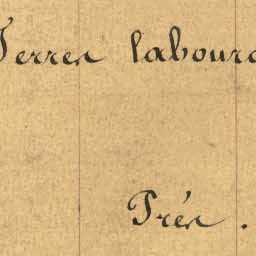 Terres labour
Prés.